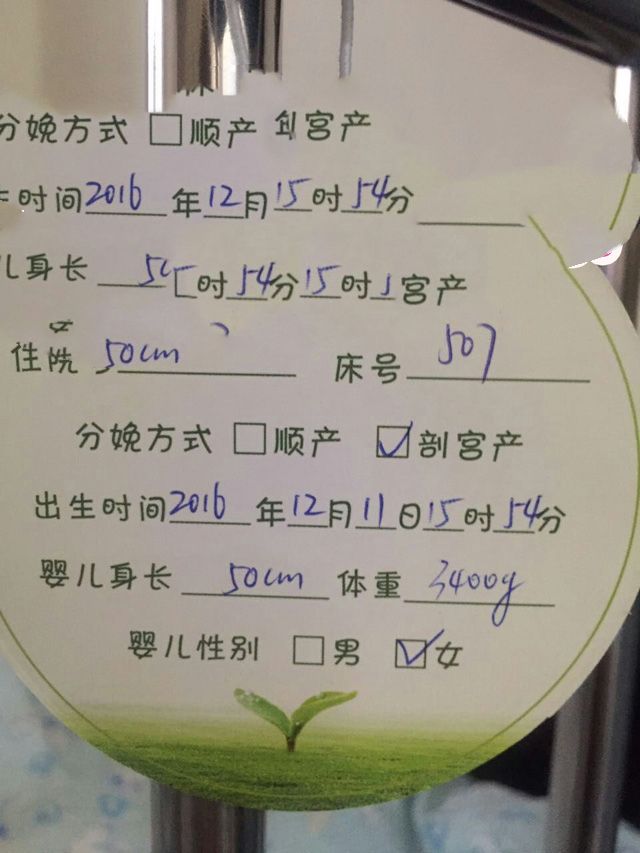 分娩方式 □顺产 宫产
时间2016年12月15时54分
儿身长 时54分15时 宫产
住院 50cm 床号 507
分娩方式 □顺产 ☑剖宫产
出生时间2016年12月11日15时54分
婴儿身长 50cm 体重 3400g
婴儿性别 □男 ☑女